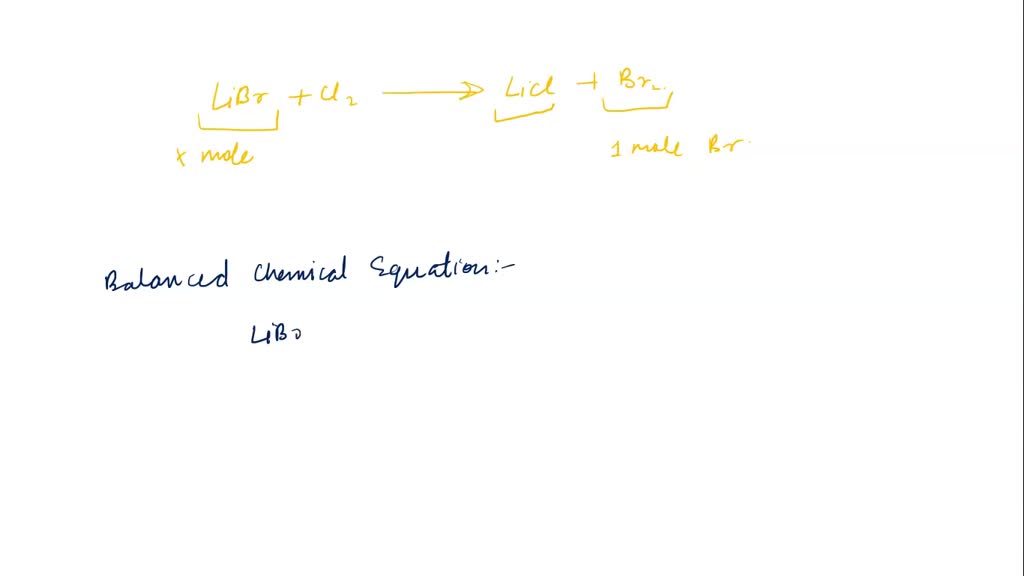 LiBr + Cl2 → LiCl + Br2.
x mole 1 mole Br
Balanced Chemical Equation:-
LiBr